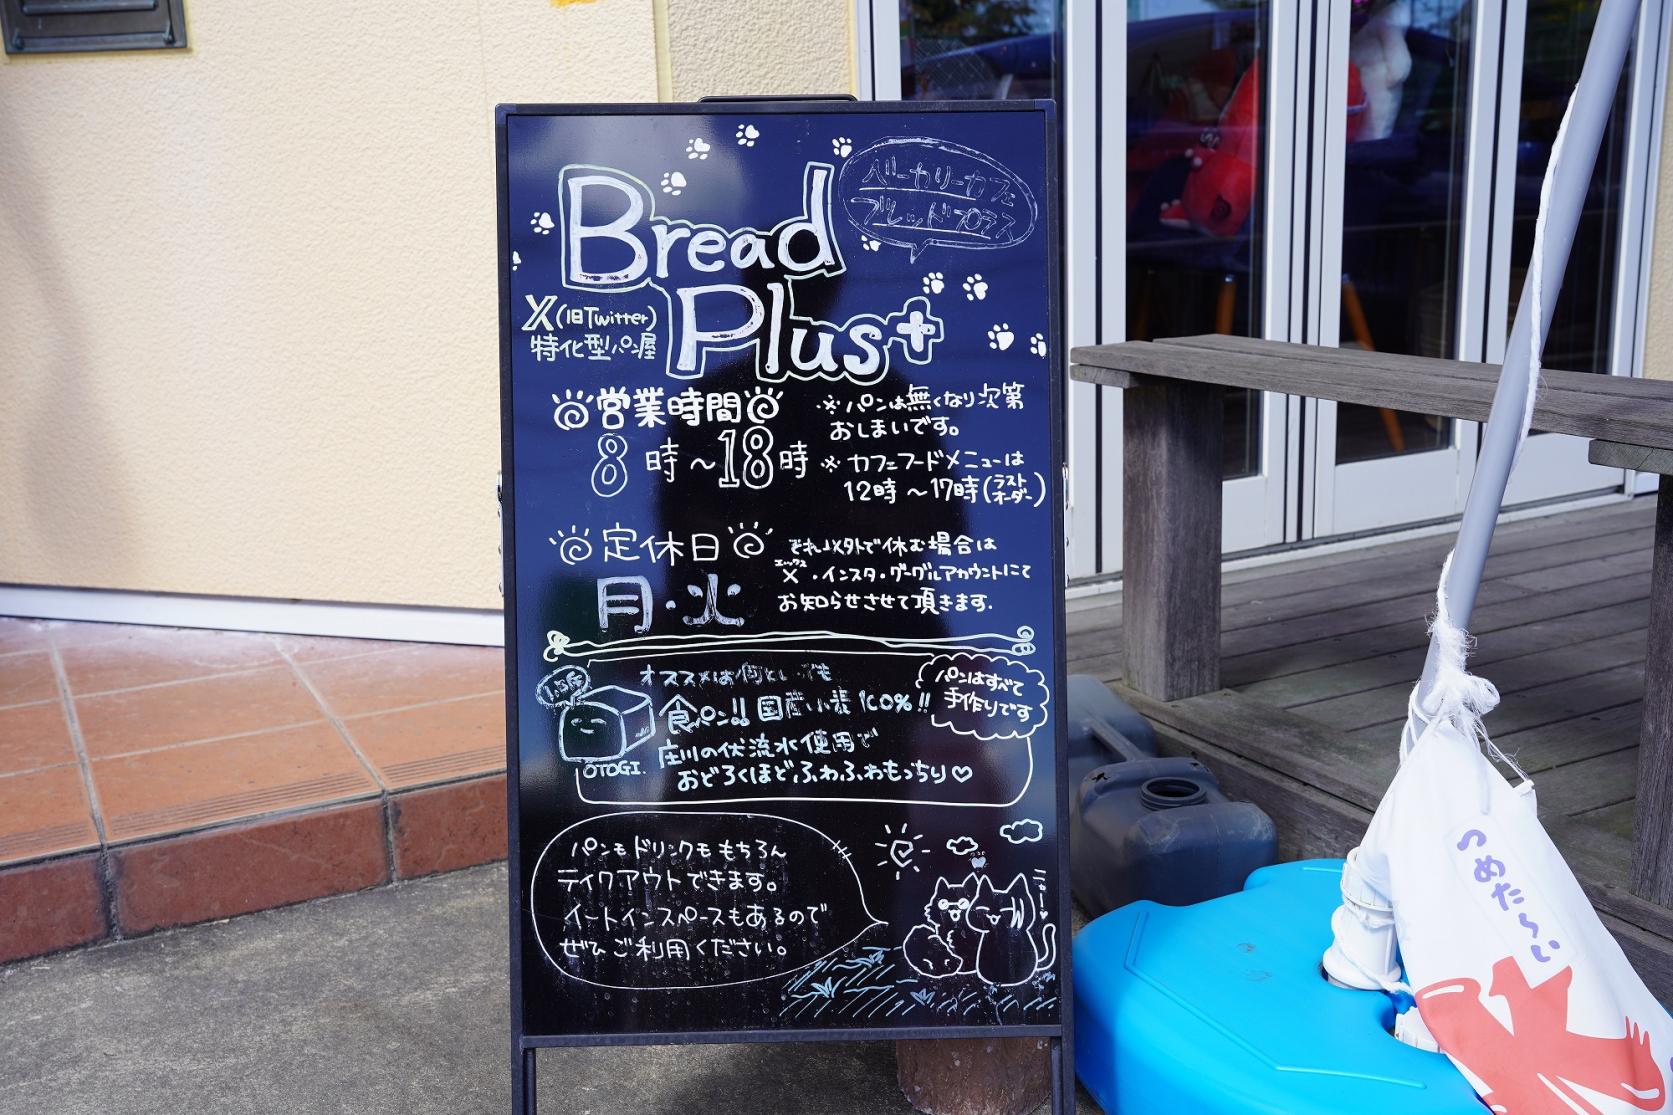 Bread
Plus+
ベーカリーカフェ
ブレッドプラス
X(旧Twitter)
特化型パン屋
営業時間
8時～18時
※パンは無くなり次第
おしまいです。
※カフェフードメニューは
12時～17時(ラストオーダー)
定休日
月・火
それ以外で休む場合は
エックス
X・インスタ・グーグルアカウントにて
お知らせさせて頂きます.
オススメは何といっても
食パン!!国産小麦100%!!
庄川の伏流水使用で
おどろくほどふわふわもっちり♡
パンはすべて
手作りです
1.5斤
OTOGI.
パンもドリンクももちろん
テイクアウトできます。
イートインスペースもあるので
ぜひご利用ください。
つめたーい